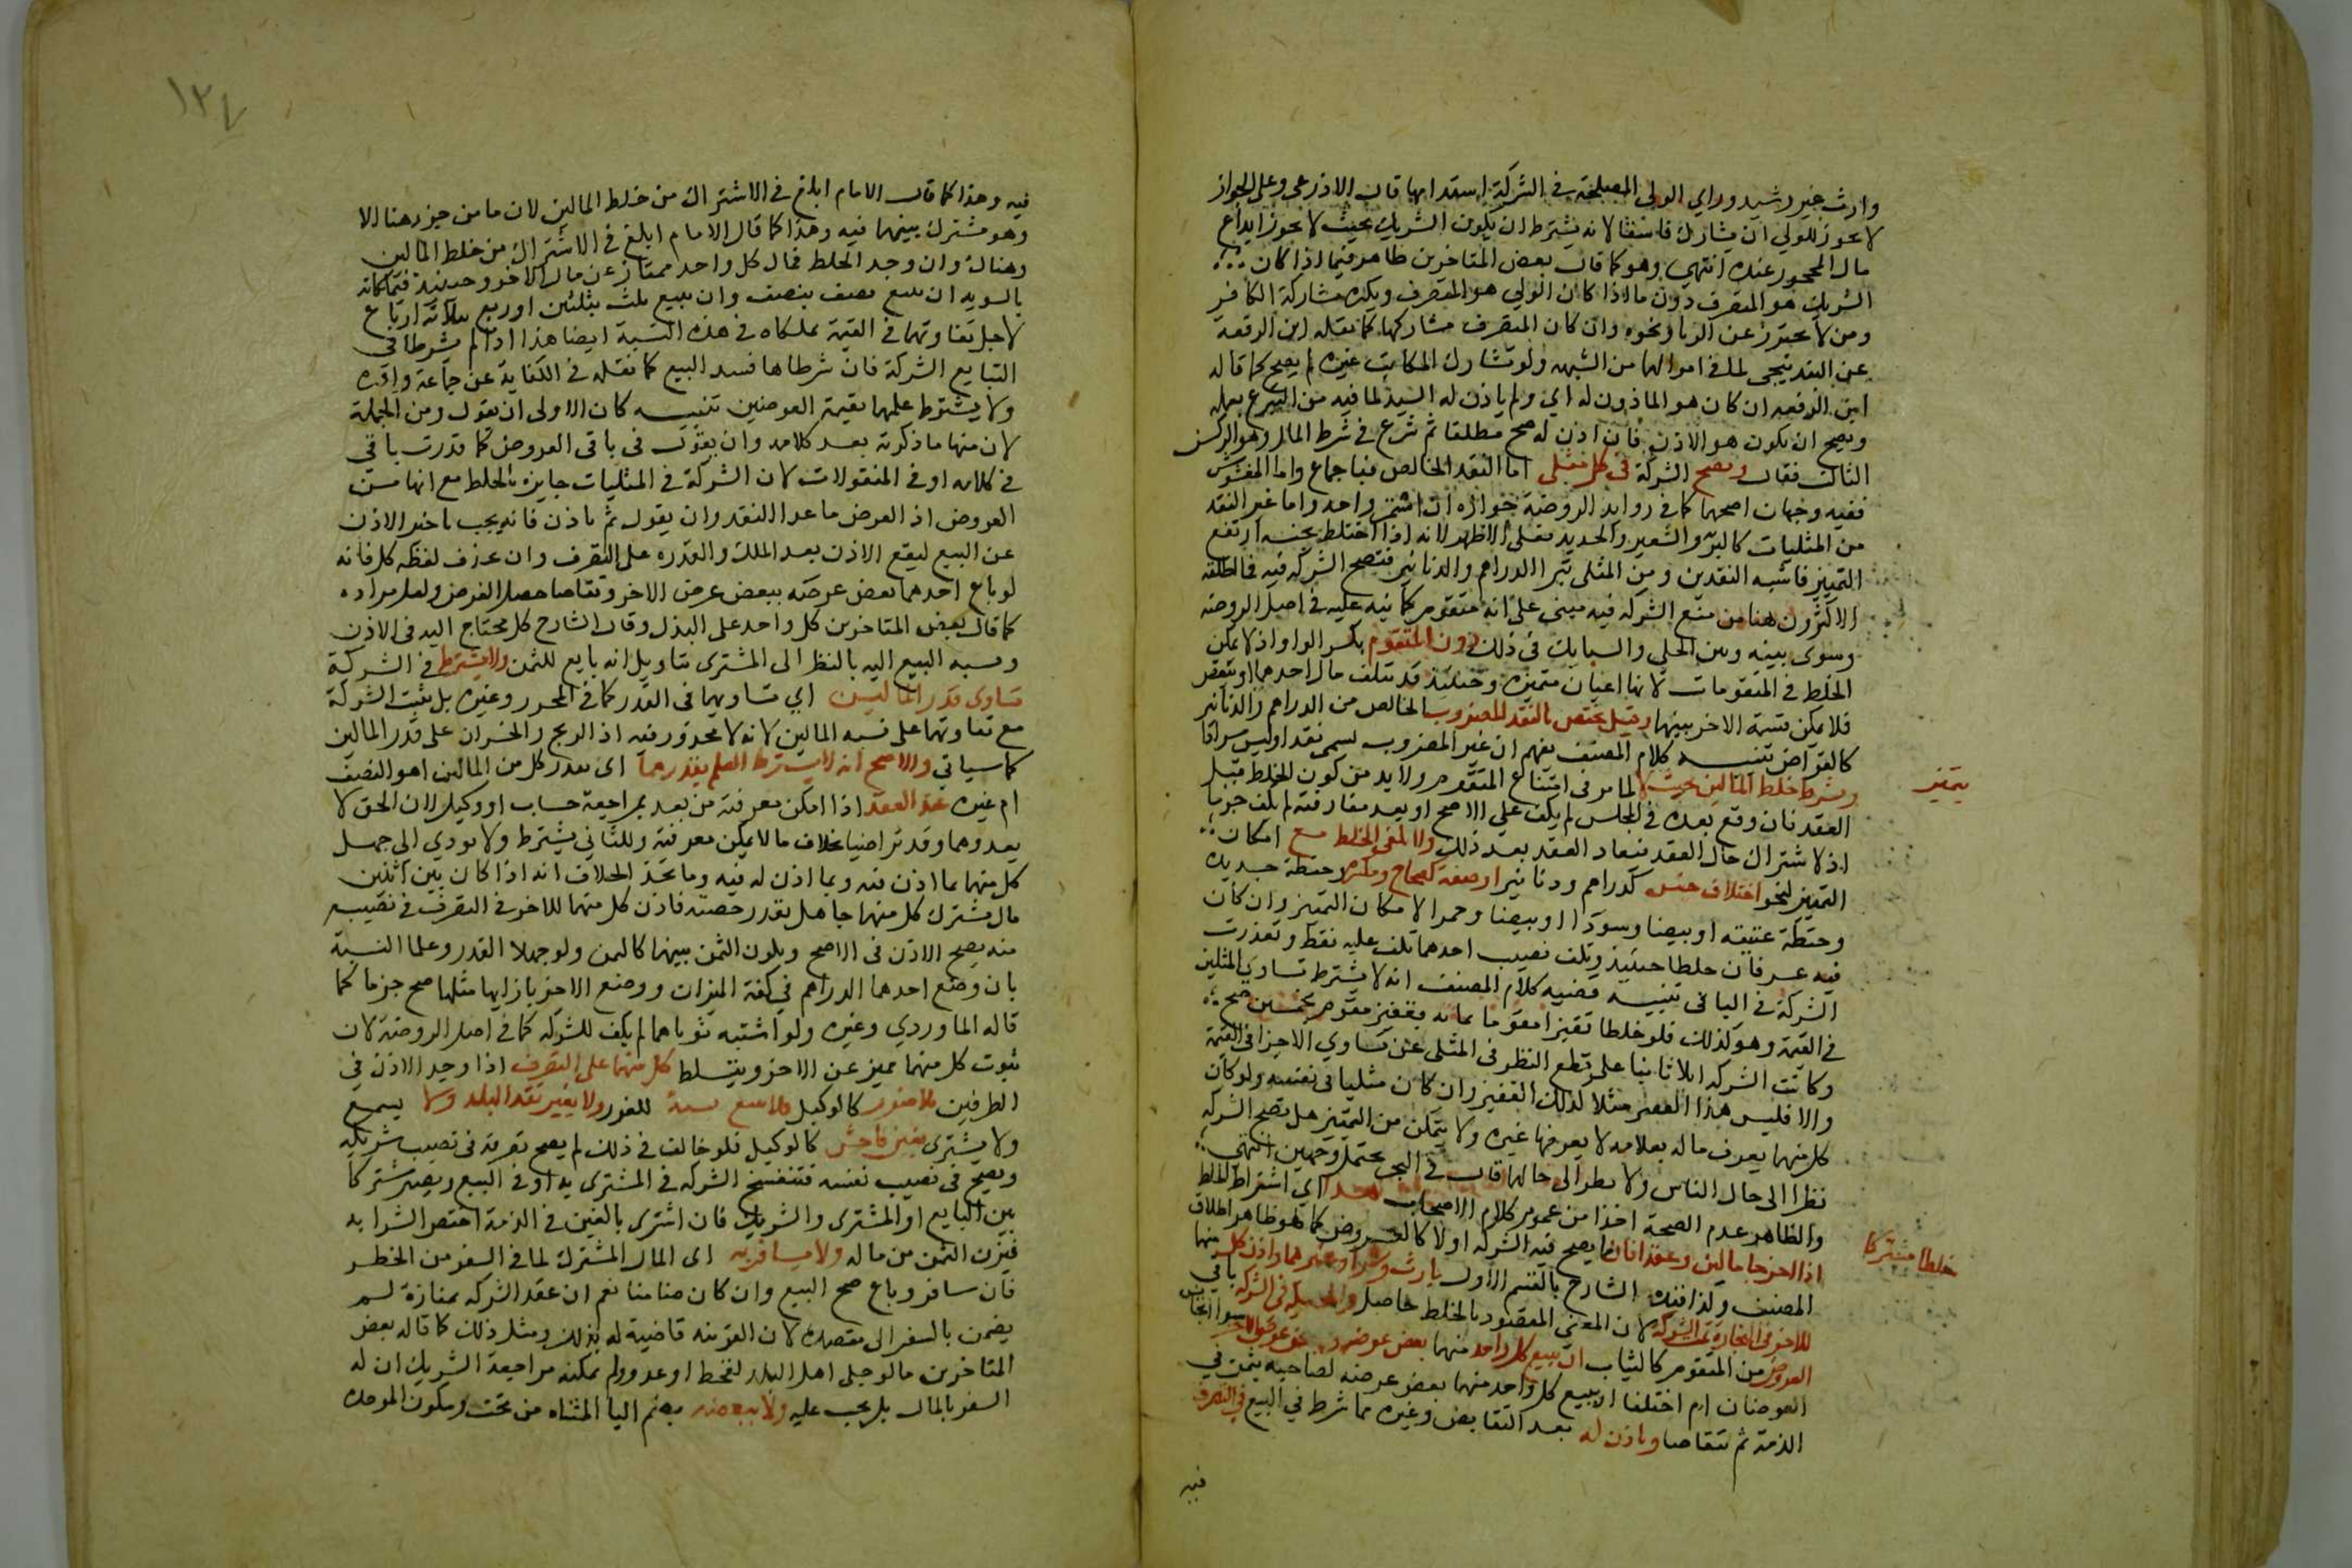 وارث غير رشيد وراي الولي المصلحة في الشركة استدامها قال الاذرعي وعلى الجواز
لا يجوز للولي ان يشارك فاسقا لانه يشترط ان يكون الشريك بحيث لا يجوز ايداع
مال المحجور عنده انتهى وهو كما قال بعض المتاخرين ظاهر فيما اذا كان
الشريك هو المتصرف دون ما اذا كان الولي هو المتصرف ويكره مشاركة الكافر
ومن لا يحترز عن الربا ونحوه وان كان المتصرف مشاركها كما نقله ابن الرفعة
عن البندنيجي لما في اموالهما من الشبهه ولو شارك المكاتب غيره لم يصح كما قاله
ابن الرفعه ان كان هو الماذون له اي ولم ياذن له السيد لما فيه من التبرع بعمله
ويصح ان يكون هو الاذن فان اذن له صح مطلقا ثم شرع في شرط المال وهو الركن
الثالث فقال وتصح الشركة في كل مثلي اما النقد الخالص فباجماع واما المغشوش
ففيه وجهان اصحهما كما في زوايد الروضة جوازه ان استمر واحد واما غير النقد
من المثليات كالبر والشعير والحديد فعلى الاظهر لانه اذا اختلط بجنسه ارتفع
التمييز فاشبه النقدين ومن المثلي تبر الدراهم والدنانير فتصح الشركه فيه فما اطلقه
الاكثرون هنا من منع الشركه فيه مبني على انه متقوم كما نبه عليه في اصل الروضه
وسوى بينه وبين الحلي والسبايك في ذلك دون المتقوم بكسر الواو اذ لا يمكن
الخلط في المتقومات لانها اعيان متميزه وحينئذ قد يتلف مال احدهما او ينقص
فلا يمكن قسمة الاخر بينهما وقيل يختص بالنقد المضروب الخالص من الدراهم والدنانير
كالقراض تنبيه كلام المصنف يفهم ان غير المضروب يسمى نقدا وليس مرادا
ويشترط خلط المالين بحيث لا لما مر في امتناع المتقوم ولا بد من كون الخلط قبل
يتميز
العقد فان وقع بعده في المجلس لم يكف على الاصح او بعد مفارقته لم يكف جزما
اذ لا اشتراك حال العقد فيعاد العقد بعد ذلك ولا يكفي الخلط مع امكان
التمييز لنحو اختلاف جنس كدراهم ودنانير او صفة كصحاح ومكسرة وحنطة جديده
وحنطة عتيقه او بيضا وسودا او بيضا وحمرا لامكان التمييز وان كان
فيه عسر فان خلطا حينئذ وتلف نصيب احدهما تلف عليه فقط وتعذرت
الشركة في الباقي تنبيه قضيه كلام المصنف انه لا يشترط تساوي المثلين
في القيمة وهو كذلك فلو خلطا قفيزا مقوما بمائه بقفيز مقوم بخمسين صح
وكانت الشركه اثلاثا بناء على قطع النظر في المثلي عن تساوي الاجزا في القيمة
والا فليس هذا القفيز مثلا لذلك القفيز وان كان مثليا في نفسه ولو كان
كل منهما يعرف ماله بعلامه لا يعرفها غيره ولا يتمكن من التمييز هل تصح الشركه
نظرا الى حال الناس او لا نظرا الى حالهما قال في البحر يحتمل وجهين انتهى
والظاهر عدم الصحة اخذا من عموم كلام الاصحاب هذا اي اشتراط الخلط
اذا اخرجا مالين وعقدا فان ما يصح فيه الشركه اولا كالعروض كما هو ظاهر اطلاق
خلطا مشتركا
المصنف ولذا قيده الشارح بالقسم الاول بارث وشرا وغيرهما واذن كل منها
للاخر في التجارة تمت الشركة لان المعنى المقصود بالخلط حاصل والحيلة في الشركة في باقي
العروض من المتقوم كالثياب ان يبيع كل واحد منهما بعض عرضه ببعض عرض الاخر سوا اتجانس
العوضان ام اختلفا او يبيع كل واحد منهما بعض عرضه لصاحبه بثمن في
الذمة ثم يتقاصا وياذن له بعد التقابض وغيره مما شرط في البيع في التصرف
فيه
١٣٧
فيه وهذا كما قال الامام ابلغ في الاشتراك من خلط المالين لان ما من جزء هنا الا
وهو مشترك بينهما فيه وهذا كما قال الامام ابلغ في الاشتراك من خلط المالين
وهناك وان وجد الخلط فمال كل واحد ممتاز عن مال الاخر وحينئذ فيملكانه
بالسويه ان بيع نصف بنصف وان بيع ثلث بثلثين او ربع بثلاثة ارباع
لاجل تفاوتهما في القيمة ملكاه في هذه النسبة ايضا هذا اذا لم يشرطا في
التبايع الشركة فان شرطاها فسد البيع كما نقله في الكفاية عن جماعة واقره
ولا يشترط علمهما بقيمة العوضين تنبيه كان الاولى ان يقول ومن الحيلة
لان منها ما ذكرته بعد كلامه وان يقول في باقي العروض كما قدرت باقي
في كلامه او في المنقولات لان الشركة في المثليات جايزه بالخلط مع انها من
العروض اذ العرض ما عدا النقد وان يقول ثم ياذن فانه يجب تاخير الاذن
عن البيع ليقع الاذن بعد الملك والقدره على التصرف وان حذف لفظه كل فانه
لو باع احدهما بعض عرضه ببعض عرض الاخر وتقاصا حصل الغرض ولعل مراده
كما قال بعض المتاخرين كل واحد على البدل وقال الشارح كل محتاج اليه في الاذن
ونسبه البيع اليه بالنظر الى المشترى بتاويل انه بايع للثمن ولا يشترط في الشركة
تساوي قدر المالين اي تساويهما في القدر كما في المحرر وغيره بل تثبت الشركة
مع تفاوتهما على نسبه المالين لانه لا محذور فيه اذ الربح والخسران على قدر المالين
كما سياتي والاصح انه لا يشترط العلم بقدرهما اي بقدر كل من المالين اهو النصف
ام غيره عند العقد اذا امكن معرفته من بعد بمراجعة حساب او وكيل لان الحق لا
يعدوهما وقد تراضيا بخلاف ما لا يمكن معرفته والثاني يشترط ولا يودي الى جهل
كل منهما بما اذن فيه وبما اذن له فيه وماخذ الخلاف انه اذا كان بين اثنين
مال مشترك كل منهما جاهل بقدر حصته فاذن كل منهما للاخر في التصرف في نصيبه
منه يصح الاذن في الاصح ويكون الثمن بينهما كالمثمن ولو جهلا القدر وعلما النسبة
بان وضع احدهما الدراهم في كفة الميزان ووضع الاخر بازايها مثلها صح جزما كما
قاله الماوردي وغيره ولو اشتبه ثوباهما لم يكف للشركه كما في اصل الروضة لان
ثوب كل منهما مميز عن الاخر ويتسلط كل منهما على التصرف اذا وجد الاذن في
الطرفين بلا ضرر كالوكيل فلا يبيع نسية للغرر ولا بغير نقد البلد ولا يبيع
ولا يشتري بغبن فاحش كالوكيل فلو خالف في ذلك لم يصح تصرفه في نصيب شريكه
ويصح في نصيب نفسه فتنفسخ الشركه في المشترى به او في البيع ويصير مشتركا
بين البايع او المشترى والشريك فان اشترى بالغبن في الذمة اختص الشرا به
فيزن الثمن من ماله ولا يسافر به اي المال المشترك لما في السفر من الخطر
فان سافر وباع صح البيع وان كان ضامنا نعم ان عقد الشركه بمفازة لم
يضمن بالسفر الى مقصده لان القرينه قاضية له بذلك ومثل ذلك كما قاله بعض
المتاخرين ما لو جلى اهل البلد لقحط او عدو ولم يمكنه مراجعة الشريك ان له
السفر بالمال بل يجب عليه ولا يبضعه بضم اليا المثناه من تحت وسكون الموحده